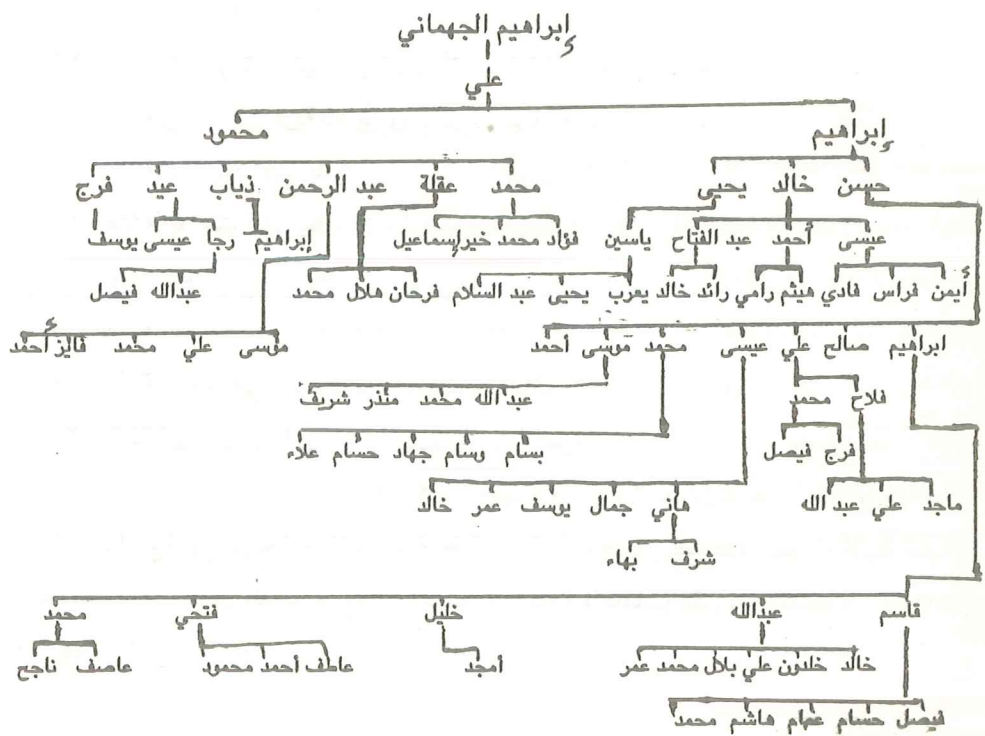 إبراهيم الجهماني
علي
إبراهيم محمود
حسن خالد يحيى محمد عقلة عبد الرحمن ذياب عيد فرج
عيسى أحمد عبد الفتاح ياسين فؤاد محمد خير إسماعيل إبراهيم رجا عيسى يوسف
أيمن فراس فادي هيثم رامي رائد خالد يعرب يحيى عبد السلام فرحان هلال محمد عبدالله فيصل
ابراهيم صالح علي عيسى محمد موسى أحمد موسى علي محمد فايز أحمد
فلاح محمد عبد الله محمد منذر شريف
فرج فيصل بسام وسام جهاد حسام علاء
ماجد علي عبد الله هاني جمال يوسف عمر خالد
شرف بهاء
قاسم عبدالله خليل فتحي محمد
خالد خلدون علي بلال محمد عمر أمجد عاطف أحمد محمود عاصف ناجح
فيصل حسام عصام هاشم محمد